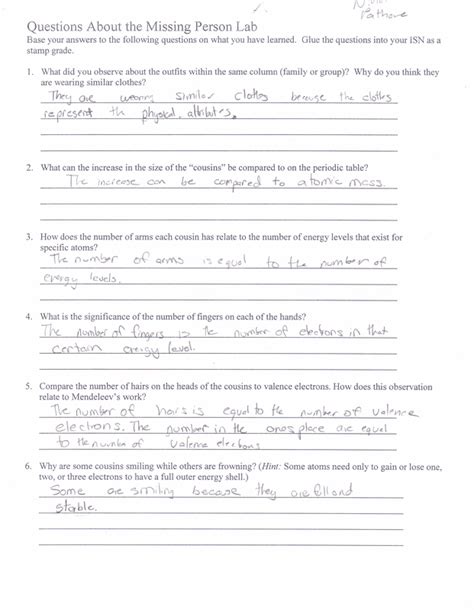 Pathove
Questions About the Missing Person Lab
Base your answers to the following questions on what you have learned. Glue the questions into your ISN as a
stamp grade.
1. What did you observe about the outfits within the same column (family or group)? Why do you think they
are wearing similar clothes?
They are wearing similar clothes because the clothes
represent the physical attributes.
2. What can the increase in the size of the "cousins" be compared to on the periodic table?
The increase can be compared to atomic mass.
3. How does the number of arms each cousin has relate to the number of energy levels that exist for
specific atoms?
The number of arms is equal to the number of
energy levels.
4. What is the significance of the number of fingers on each of the hands?
The number of fingers is the number of electrons in that
certain energy level.
5. Compare the number of hairs on the heads of the cousins to valence electrons. How does this observation
relate to Mendeleev's work?
The number of hairs is equal to the number of valence
electrons. The number in the ones place are equal
to the number of valence electrons
6. Why are some cousins smiling while others are frowning? (Hint: Some atoms need only to gain or lose one,
two, or three electrons to have a full outer energy shell.)
Some are smiling because they are full and
stable.